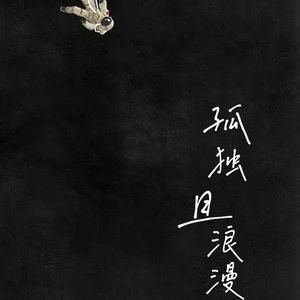 孤独且浪漫